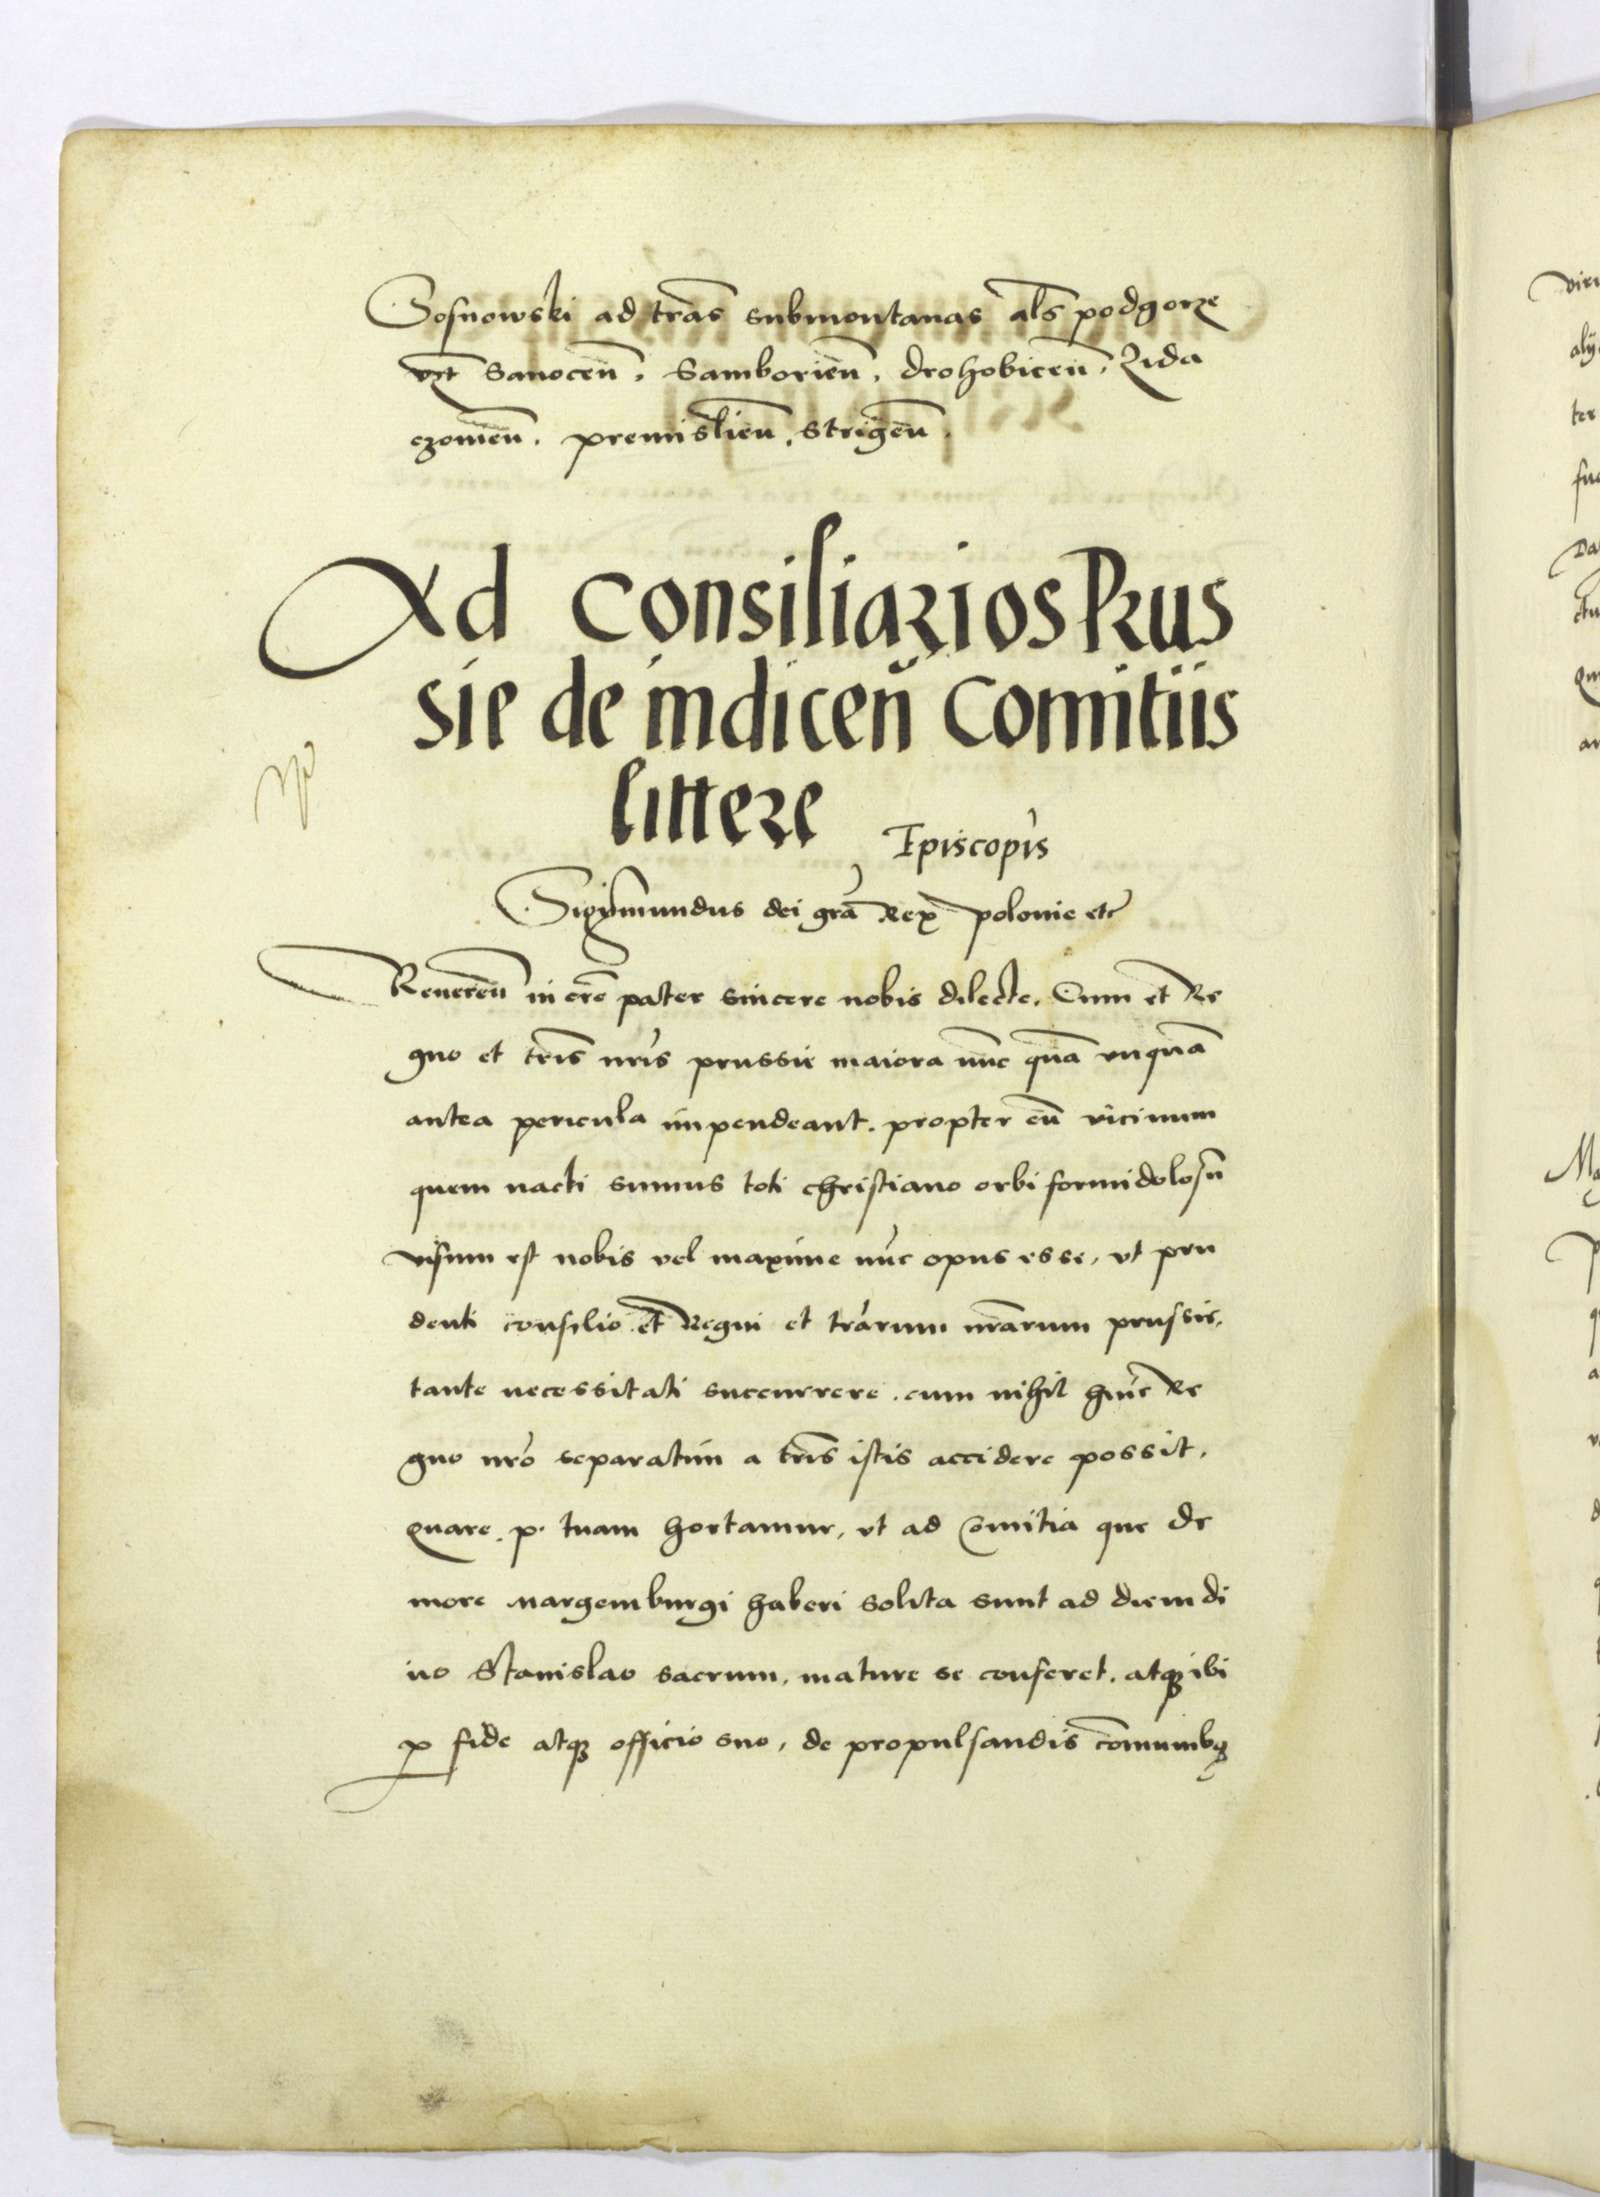 Sosnowski ad tras submontanas als podgorze
vzt Sanocen̄. Samborien̄. drohobicen̄. Zida
czonien̄. premislien̄. Strigen̄.
Ad Consiliarios Prus
sie de indicen̄ Comitiis
littere
Episcopis
Sigismundus dei gra Rex polonie etc
Reueren̄ in cr̄o pater sincere nobis dilecte. Cum et Re
gno et tris nris prussie maiora nūc quā vnquā
antea pericula impendeant. propter eū vicinum
quem nacti sumus toti christiano orbi formidolosū
visum est nobis vel maxime nūc opus esse, vt pru
denti consilio et Regni et trarum nrarum prussie,
tante necessitati succurrere. cum nihil huic Re
gno nro separatim a tris istis accidere possit.
Quare. p. tuam hortamur, vt ad Comitia que de
more margemburgi haberi solita sunt ad diem di
uo Stanislao sacrum, mature se conferet. atqꝫ ibi
p fide atqꝫ officio suo, de propulsandis cōmunibꝫ
vici
alij
ter